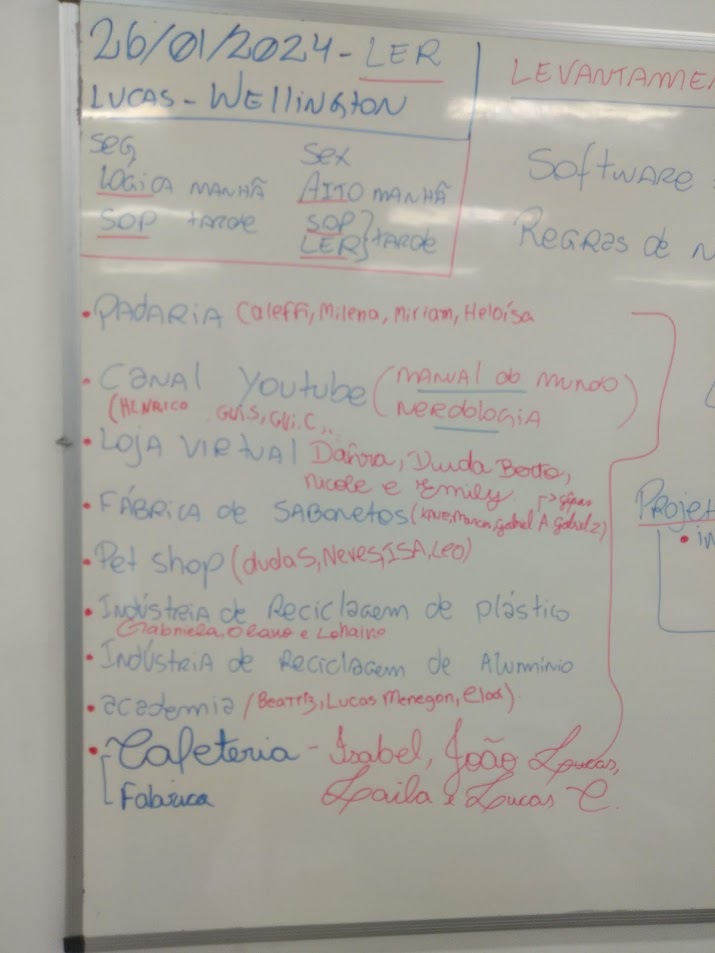 26/01/2024 - LER
LUCAS - WELLINGTON
SEG SEX
LÓGICA MANHÃ AITO MANHÃ
SOP tarde SOP
LER } tarde
LEVANTAME
SOFTWARE
REGRAS DE N
• PADARIA Caleffi, Milena, Miriam, Heloísa
• CANAL YOUTUBE (MANUAL DO MUNDO
NERDOLOGIA)
(HENRICO GUI.S, GUI.C...
• LOJA VIRTUAL Duda Berto,
Nicole e Emily.
• FÁBRICA DE SABONETOS ( Gabriel A Gabriel Z)
• Pet shop (duda S, Neves, ISA, Leo)
• INDÚSTRIA DE RECICLAGEM DE PLÁSTICO
Gabriela, e
• INDÚSTRIA DE RECICLAGEM DE ALUMINIO
• academia (Beatriz, Lucas Menegon,
• Cafeteria - Isabel, João Lucas,
Fabrica Laila e Lucas C.
PROJET
• IN